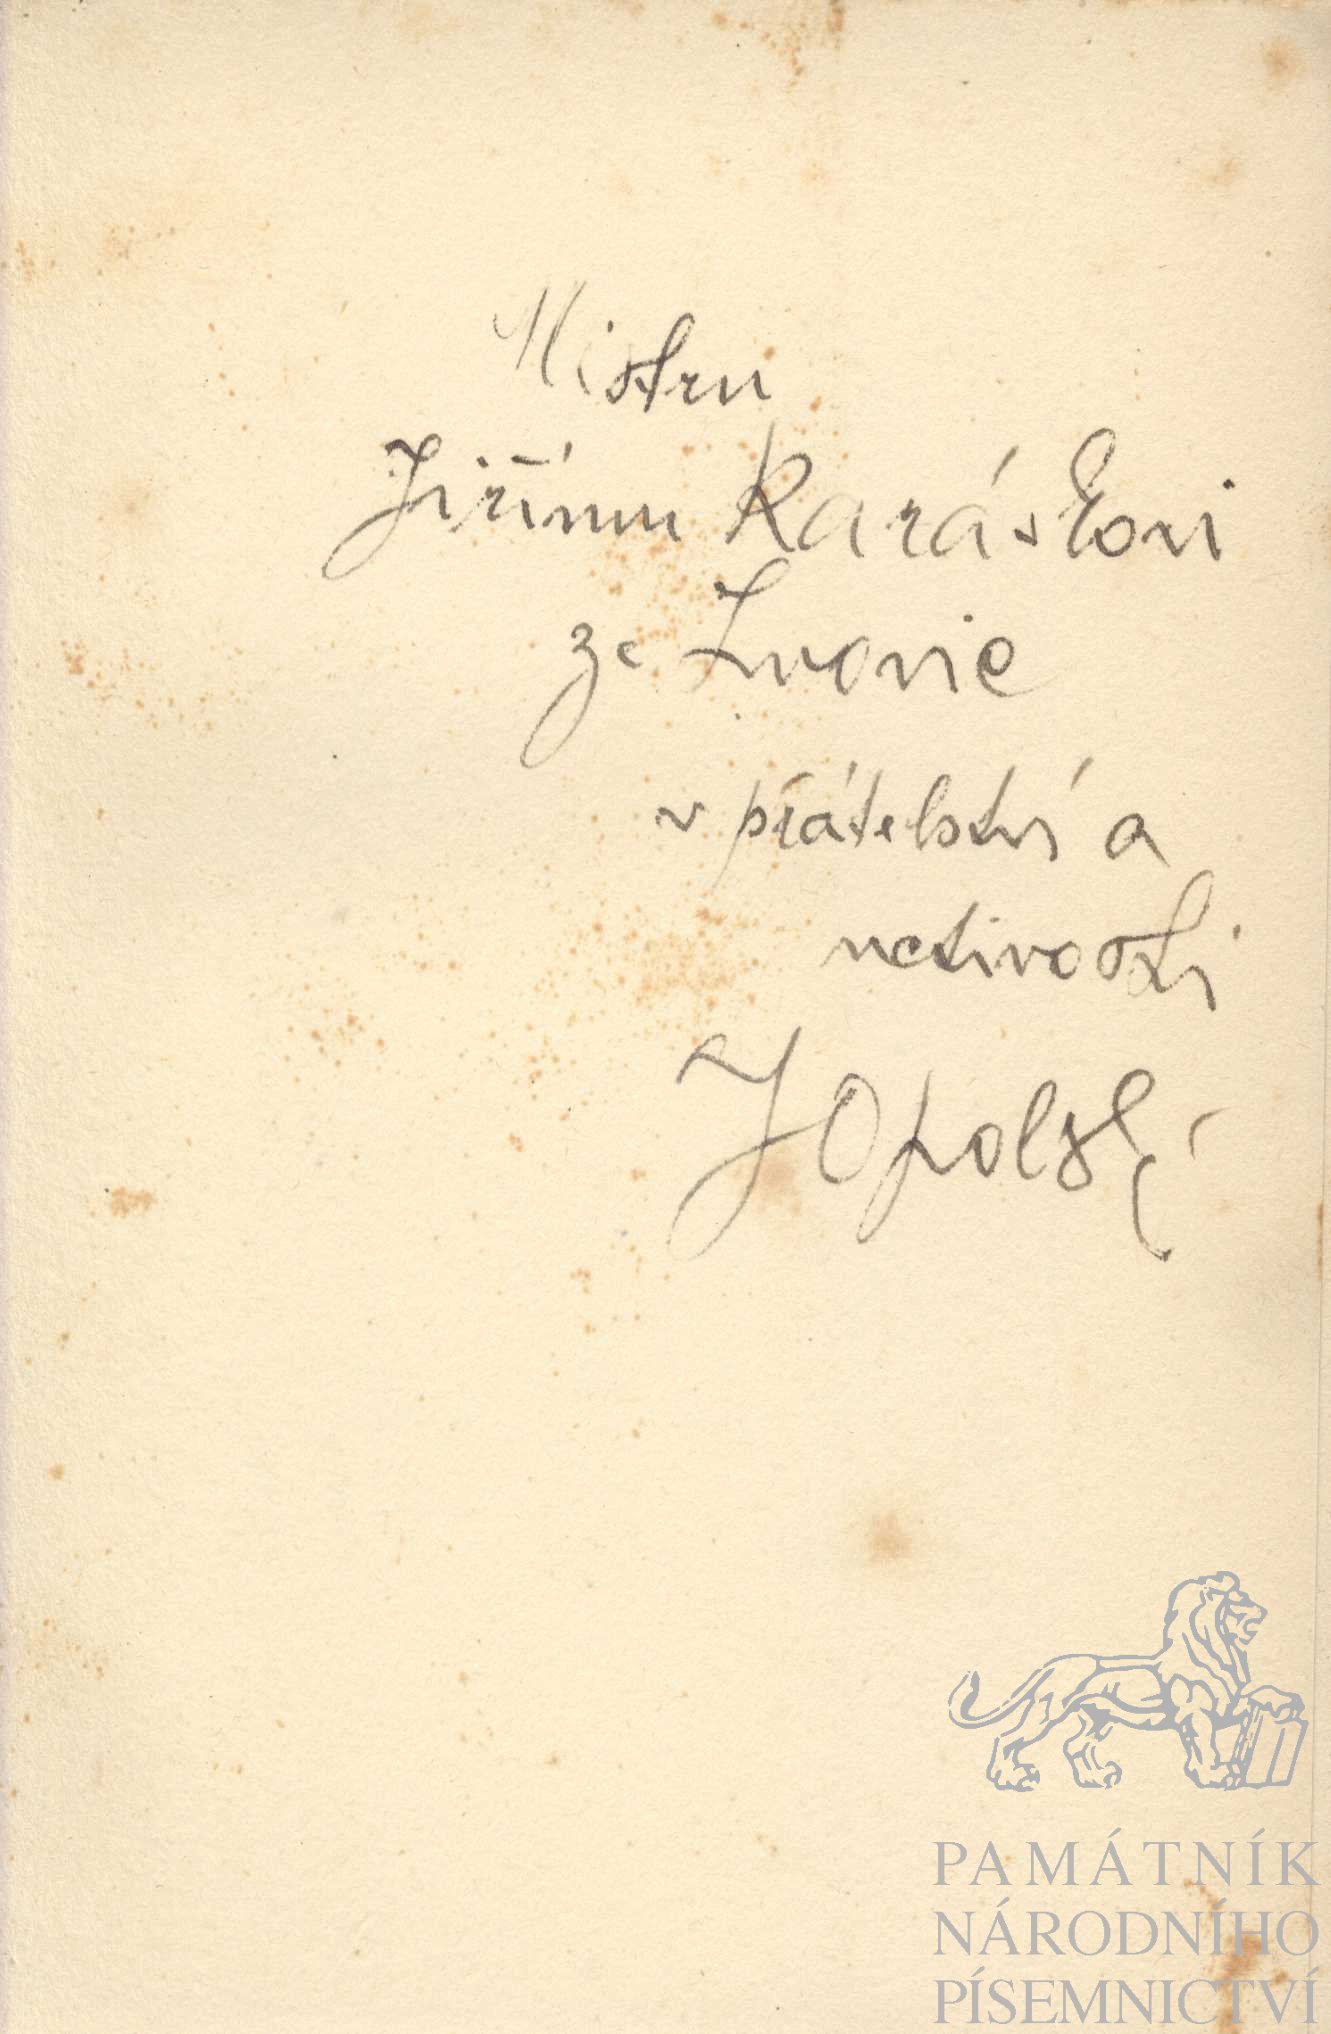 Mistru
Jiřímu Karáskovi
ze Lvovic
v přátelství a
uctivosti
JOpolský
PAMÁTNÍK
NÁRODNÍHO
PÍSEMNICTVÍ